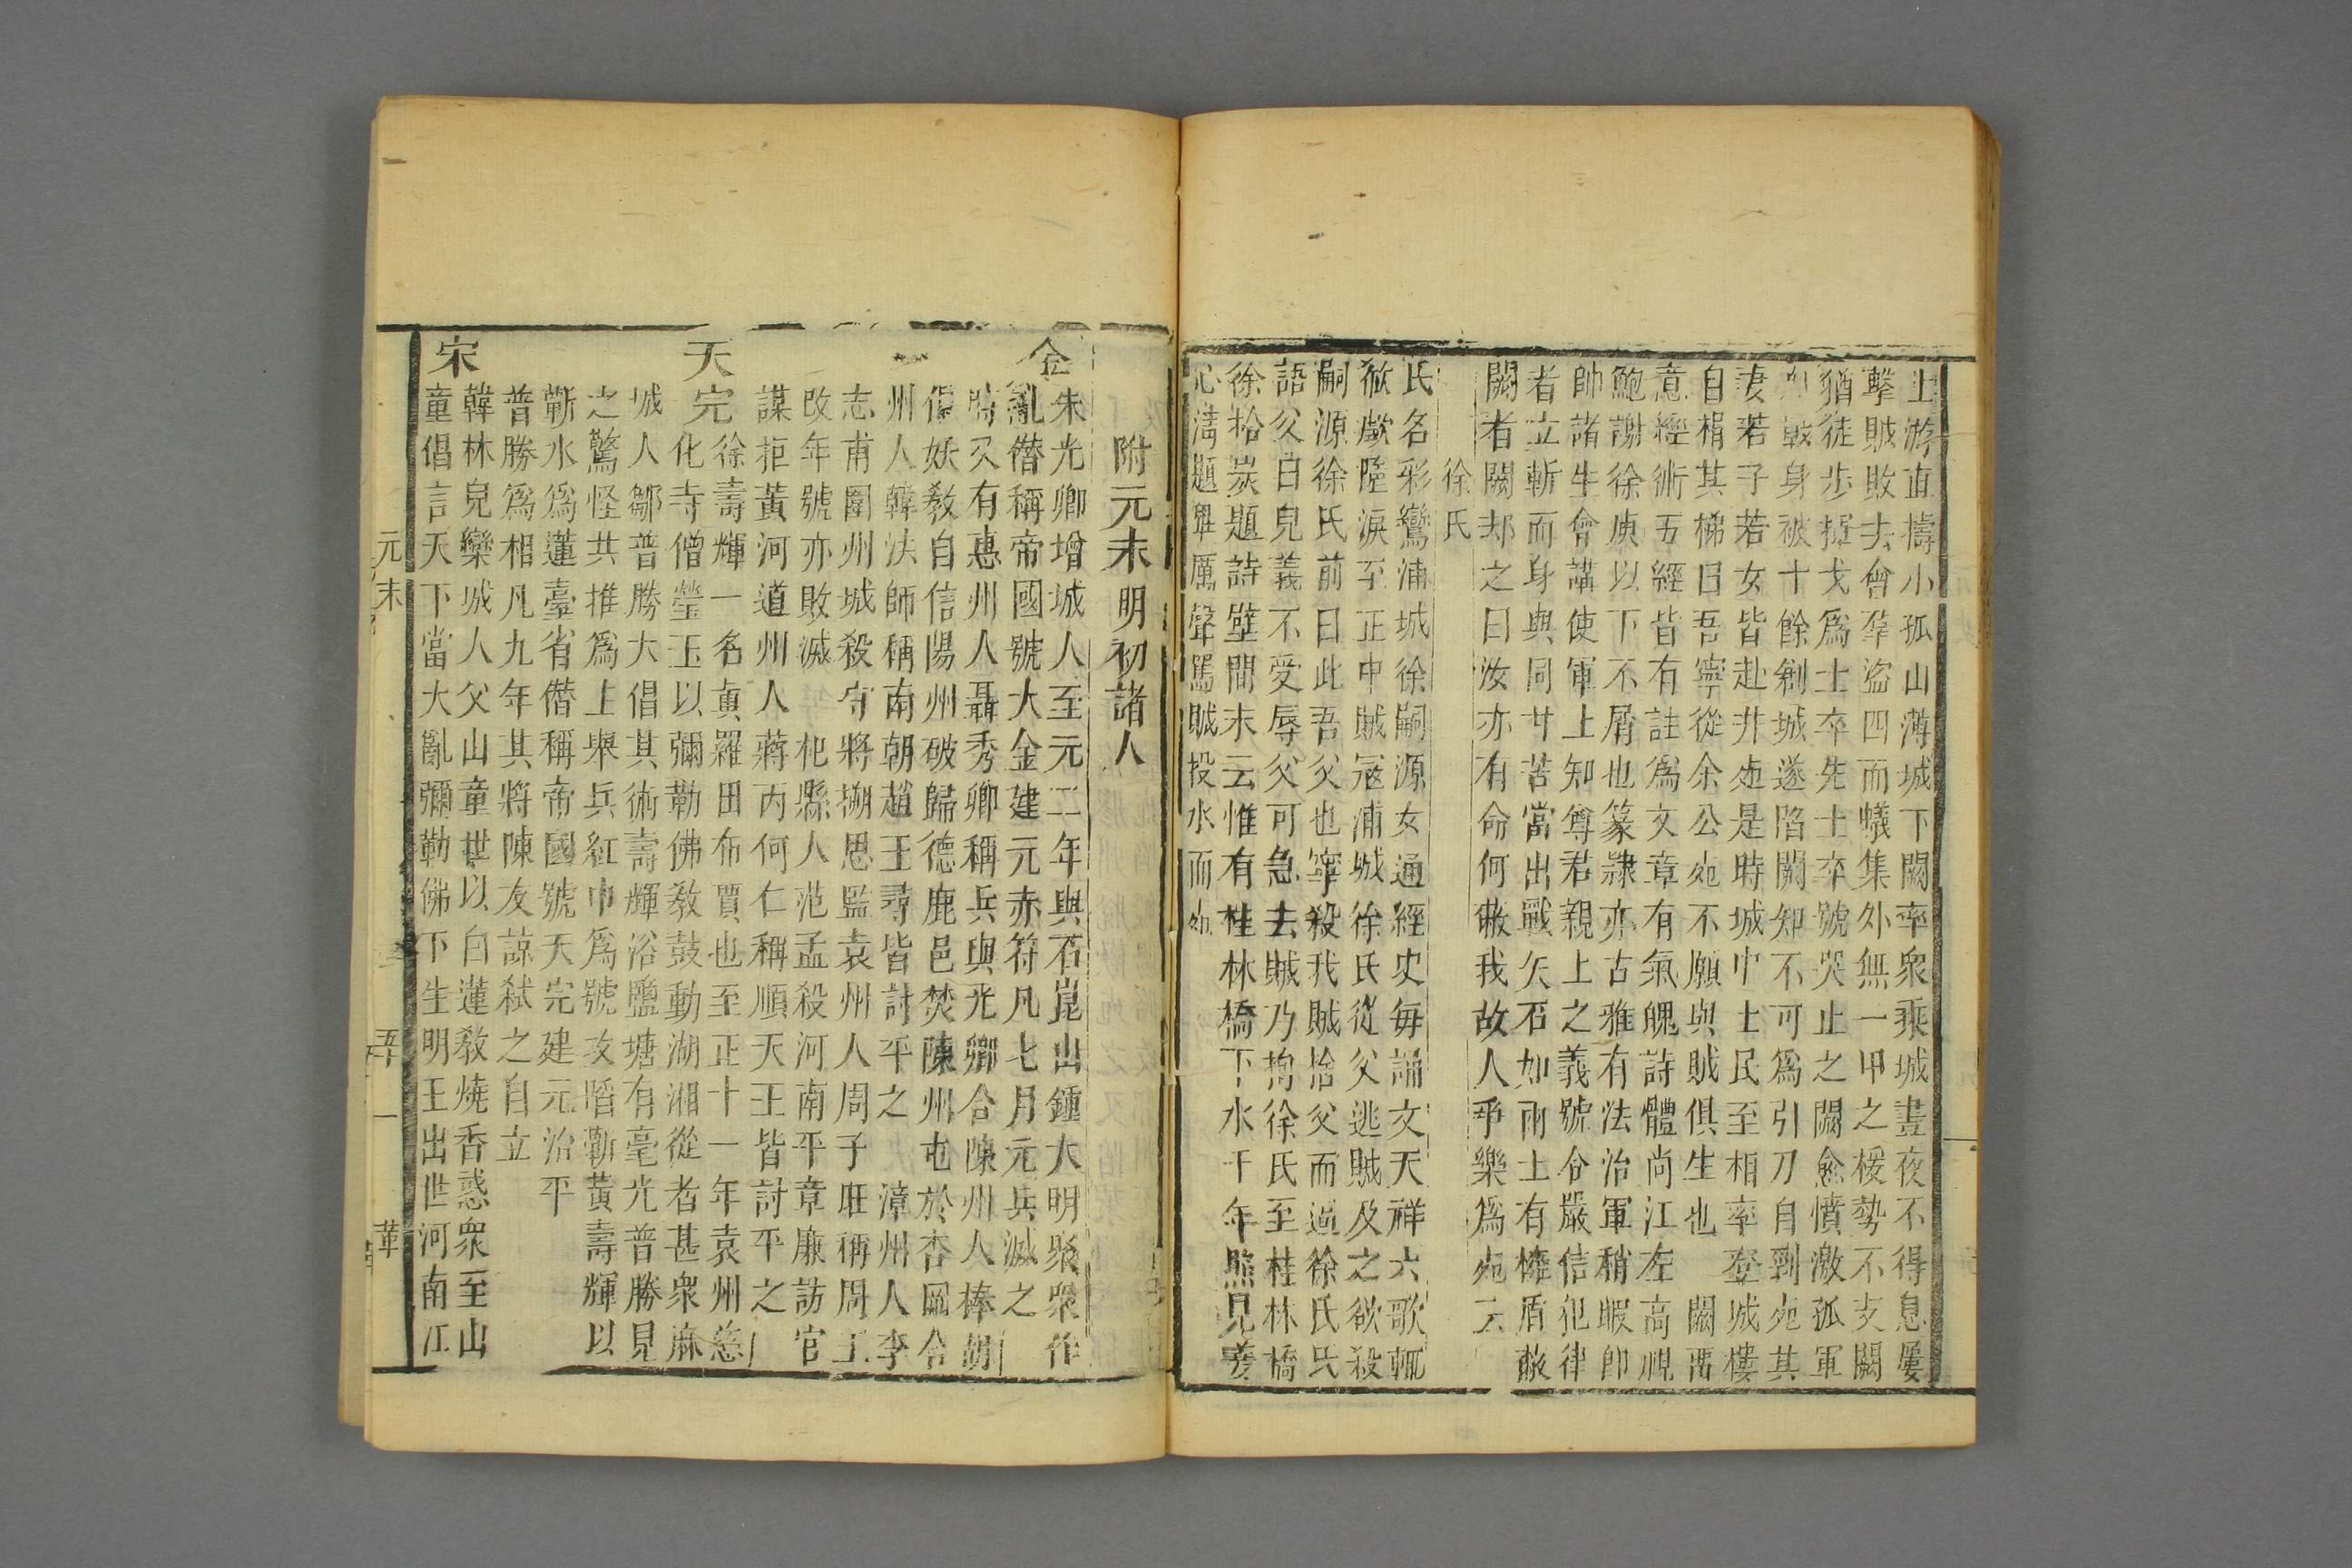 上游直擣小孤山薄城下闕率衆乘城晝夜不得息屢
擊賊敗去會羣盜四面蟻集外無一甲之援勢不支闕
猶徒步提戈爲士卒先士卒號哭止之闕愈憤激孤軍
戰身被十餘創城遂陷闕知不可爲引刀自剄死其
妻若子若女皆赴井死是時城中士民至相率登城樓
自捐其梯曰吾寧從余公死不願與賊俱生也 闕畱
意經術五經皆有註爲文章有氣魄詩體尚江左高視
鮑謝徐庾以下不屑也篆隷亦古雅有法治軍稍暇即
帥諸生會講使軍上知尊君親上之義號令嚴信犯律
者立斬而身與同甘苦當出戰矢石如雨士有擁盾蔽
闕者闕却之曰汝亦有命何蔽我故人爭樂爲死云
徐氏
氏名彩鸞浦城徐嗣源女通經史每誦文天祥六歌輒
欷歔墮淚至正中賊寇浦城徐氏從父逃賊及之欲殺
嗣源徐氏前曰此吾父也寧殺我賊捨父而逼徐氏氏
語父曰兒義不受辱父可急去賊乃拘徐氏至桂林橋
徐拾炭題詩壁間末云惟有桂林橋下水千年照見妾
心清題畢厲聲罵賊投水而死
附元末明初諸人
金
朱光卿增城人至元二年與石崑山鍾大明聚衆作
亂僭稱帝國號大金建元赤符凡七月元兵滅之
時又有惠州人聶秀卿稱兵與光卿合陳州人棒胡
倡妖敎自信陽州破歸德鹿邑焚陳州屯於杏岡合
州人韓法師稱南朝趙王尋皆討平之 漳州人李
志甫圍州城殺守將搠思監袁州人周子旺稱周王
改年號亦敗滅 杞縣人范孟殺河南平章廉訪官
謀拒黃河道州人蔣丙何仁稱順天王皆討平之
天完
徐壽輝一名眞羅田布賈也至正十一年袁州慈
化寺僧瑩玉以彌勒佛敎鼓動湖湘從者甚衆麻
城人鄒普勝大倡其術壽輝浴鹽塘有毫光普勝見
之驚怪共推爲上舉兵紅巾爲號攻陷蘄黃壽輝以
蘄水爲蓮臺省僭稱帝國號天完建元治平
普勝爲相凡九年其將陳友諒弒之自立
宋
韓林兒欒城人父山童世以白蓮敎燒香惑衆至山
童倡言天下當大亂彌勒佛下生明王出世河南江
元末